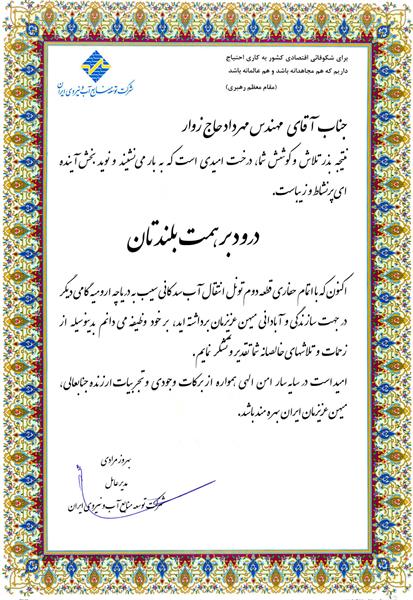 برای شکوفائی اقتصادی کشور به کاری احتیاج
داریم که هم مجاهدانه باشد و هم عالمانه باشد
(مقام معظم رهبری)
شرکت توسعه منابع آب و نیروی ایران
جناب آقای مهندس مهرداد حاج زوار
نتیجه بذر تلاش و کوشش شما، درخت امیدی است که به بار می‌نشیند و نوید بخش آینده
ای پر نشاط و زیباست.
درود بر همت بلندتان
اکنون که با اتمام حفاری قطعه دوم تونل انتقال آب سد کانی سیب به دریاچه ارومیه گامی دیگر
در جهت سازندگی و آبادانی میهن عزیزمان برداشته اید، بر خود وظیفه می دانم بدینوسیله از
زحمات و تلاشهای خالصانه شما تقدیر و تشکر نمایم.
امید است در سایه سار امن الهی همواره از برکات وجودی و تجربیات ارزنده جنابعالی،
میهن عزیزمان ایران بهره مند باشد.
بهروز مرادی
مدیر عامل
شرکت توسعه منابع آب و نیروی ایران